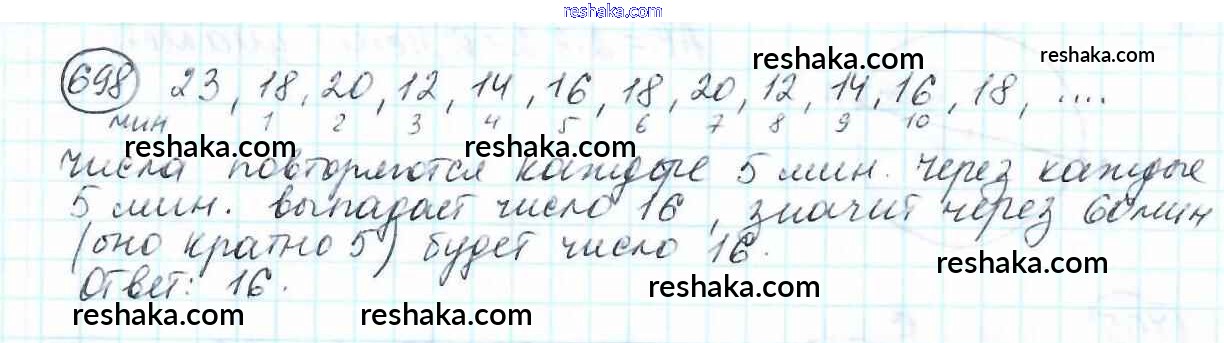 reshaka.com
reshaka.com reshaka.com
698 23, 18, 20, 12, 14, 16, 18, 20, 12, 14, 16, 18, ....
мин 1 2 3 4 5 6 7 8 9 10
reshaka.com reshaka.com reshaka.com
числа повторяются каждые 5 мин. Через каждые
5 мин. выпадает число 16, значит через 60 мин
reshaka.com reshaka.com
(оно кратно 5) будет число 16.
reshaka.com
Ответ: 16.
reshaka.com
reshaka.com reshaka.com